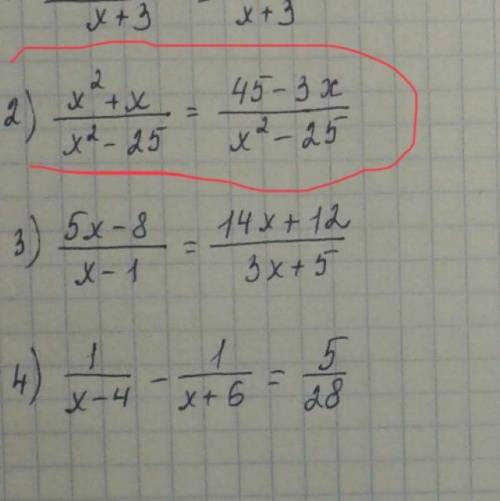 x+3 x+3
2) (x² + x)/(x² - 25) = (45 - 3x)/(x² - 25)
3) (5x - 8)/(x - 1) = (14x + 12)/(3x + 5)
4) 1/(x - 4) - 1/(x + 6) = 5/28